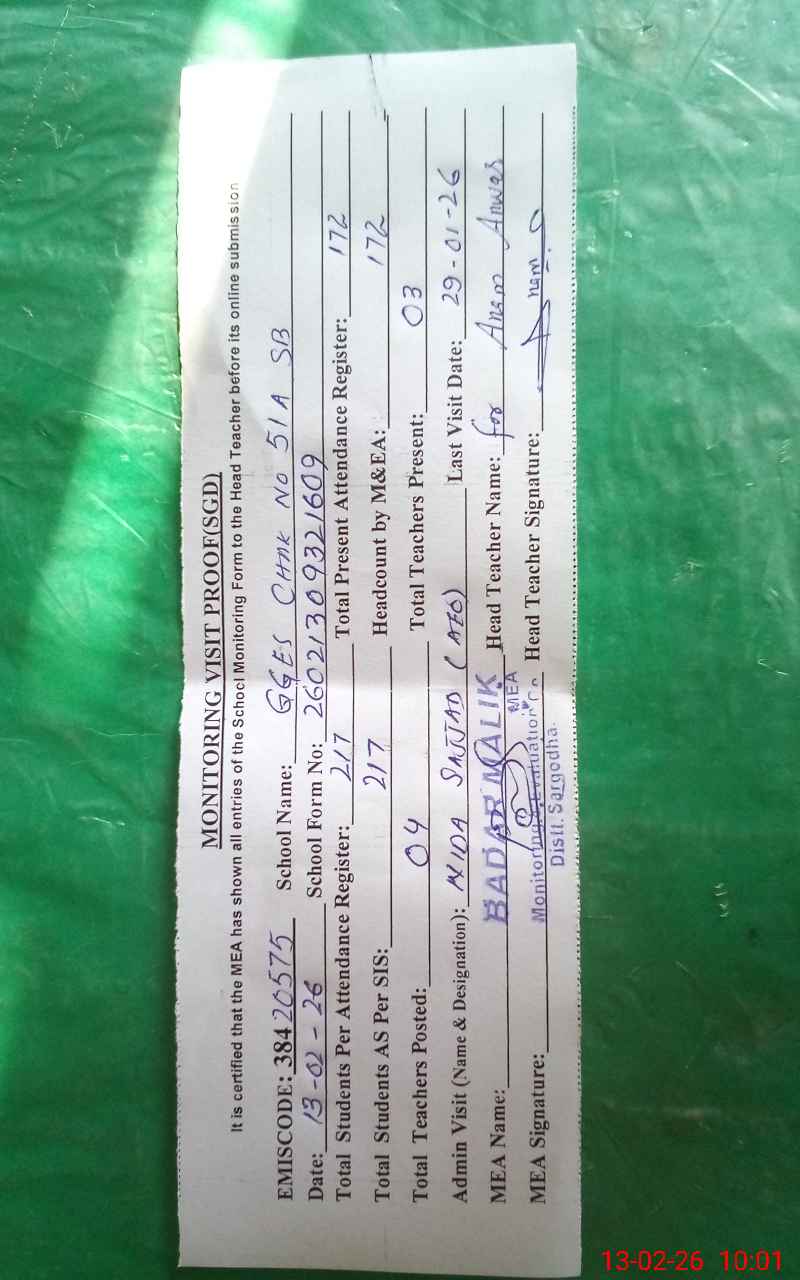 MONITORING VISIT PROOF(SGD)
It is certified that the MEA has shown all entries of the School Monitoring Form to the Head Teacher before its online submission
EMISCODE: 38420575 School Name: GGES CHAK NO 51A SB
Date: 13-02-26 School Form No: 26021309321609
Total Students Per Attendance Register: 217 Total Present Attendance Register: 172
Total Students AS Per SIS: 217 Headcount by M&EA: 172
Total Teachers Posted: 04 Total Teachers Present: 03
Admin Visit (Name & Designation): NIDA SAJJAD (AEO) Last Visit Date: 29-01-26
MEA Name: BADAR MALIK Head Teacher Name: for Anam Anwar
MEA
MEA Signature: Monitoring & Evaluation Head Teacher Signature: Anam
Distt. Sargodha.
13-02-26 10:01